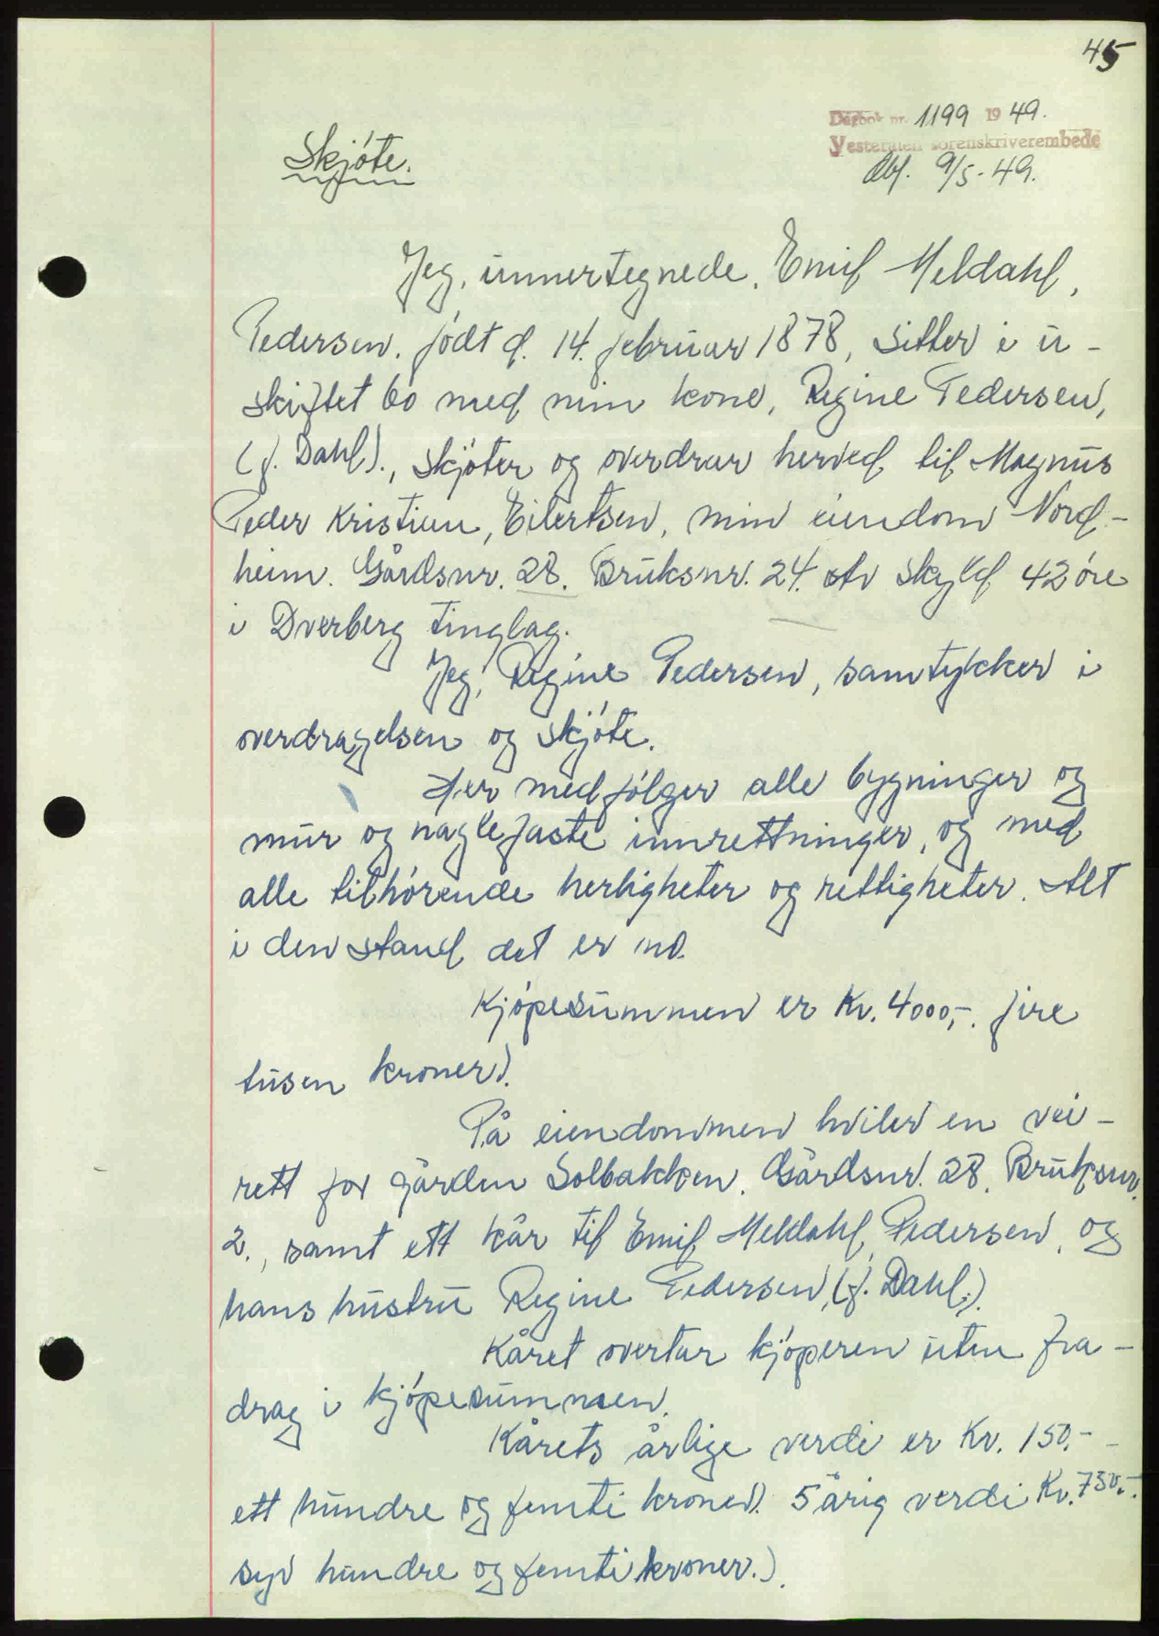 45
Dagbok nr. 1199 1949.
Vesterålen sorenskriverembede
Skjøte.
dbf. 9/5-49.
Jeg, unnertegnede, Emil Meldahl,
Pedersen, født d. 14. februar 1878, sitter i u-
skiftet bo med min kone, Regine Pedersen,
(f. Dahl)., skjøter og overdrar herved til Magnus
Peder Kristian, Eilertsen, min eiendom Nord-
heim. Gårdsnr. 28. Bruksnr. 24. Av skyld 42 øre
i Dverberg tinglag.
Jeg, Regine Pedersen, samtykker i
overdragelsen og skjøte.
Her medfølger alle bygninger og
mur og naglefaste innrettninger, og med
alle tilhørende herligheter og rettigheter. Alt
i den stand det er no.
Kjøpesummen er Kr. 4000,-. fire
tusen kroner).
På eiendommen hviler en vei-
rett for gården Solbakken. Gårdsnr. 28. Bruksnr.
2., samt ett kår til Emil Meldahl, Pedersen, og
hans hustru Regine Pedersen, (f. Dahl.).
Kåret overtar kjøperen uten fra-
drag i kjøpesummen.
Kårets årlige verdi er Kr. 150.-
ett hundre og femti kroner). 5 årig verdi Kr. 750.-.
syv hundre og femti kroner.).